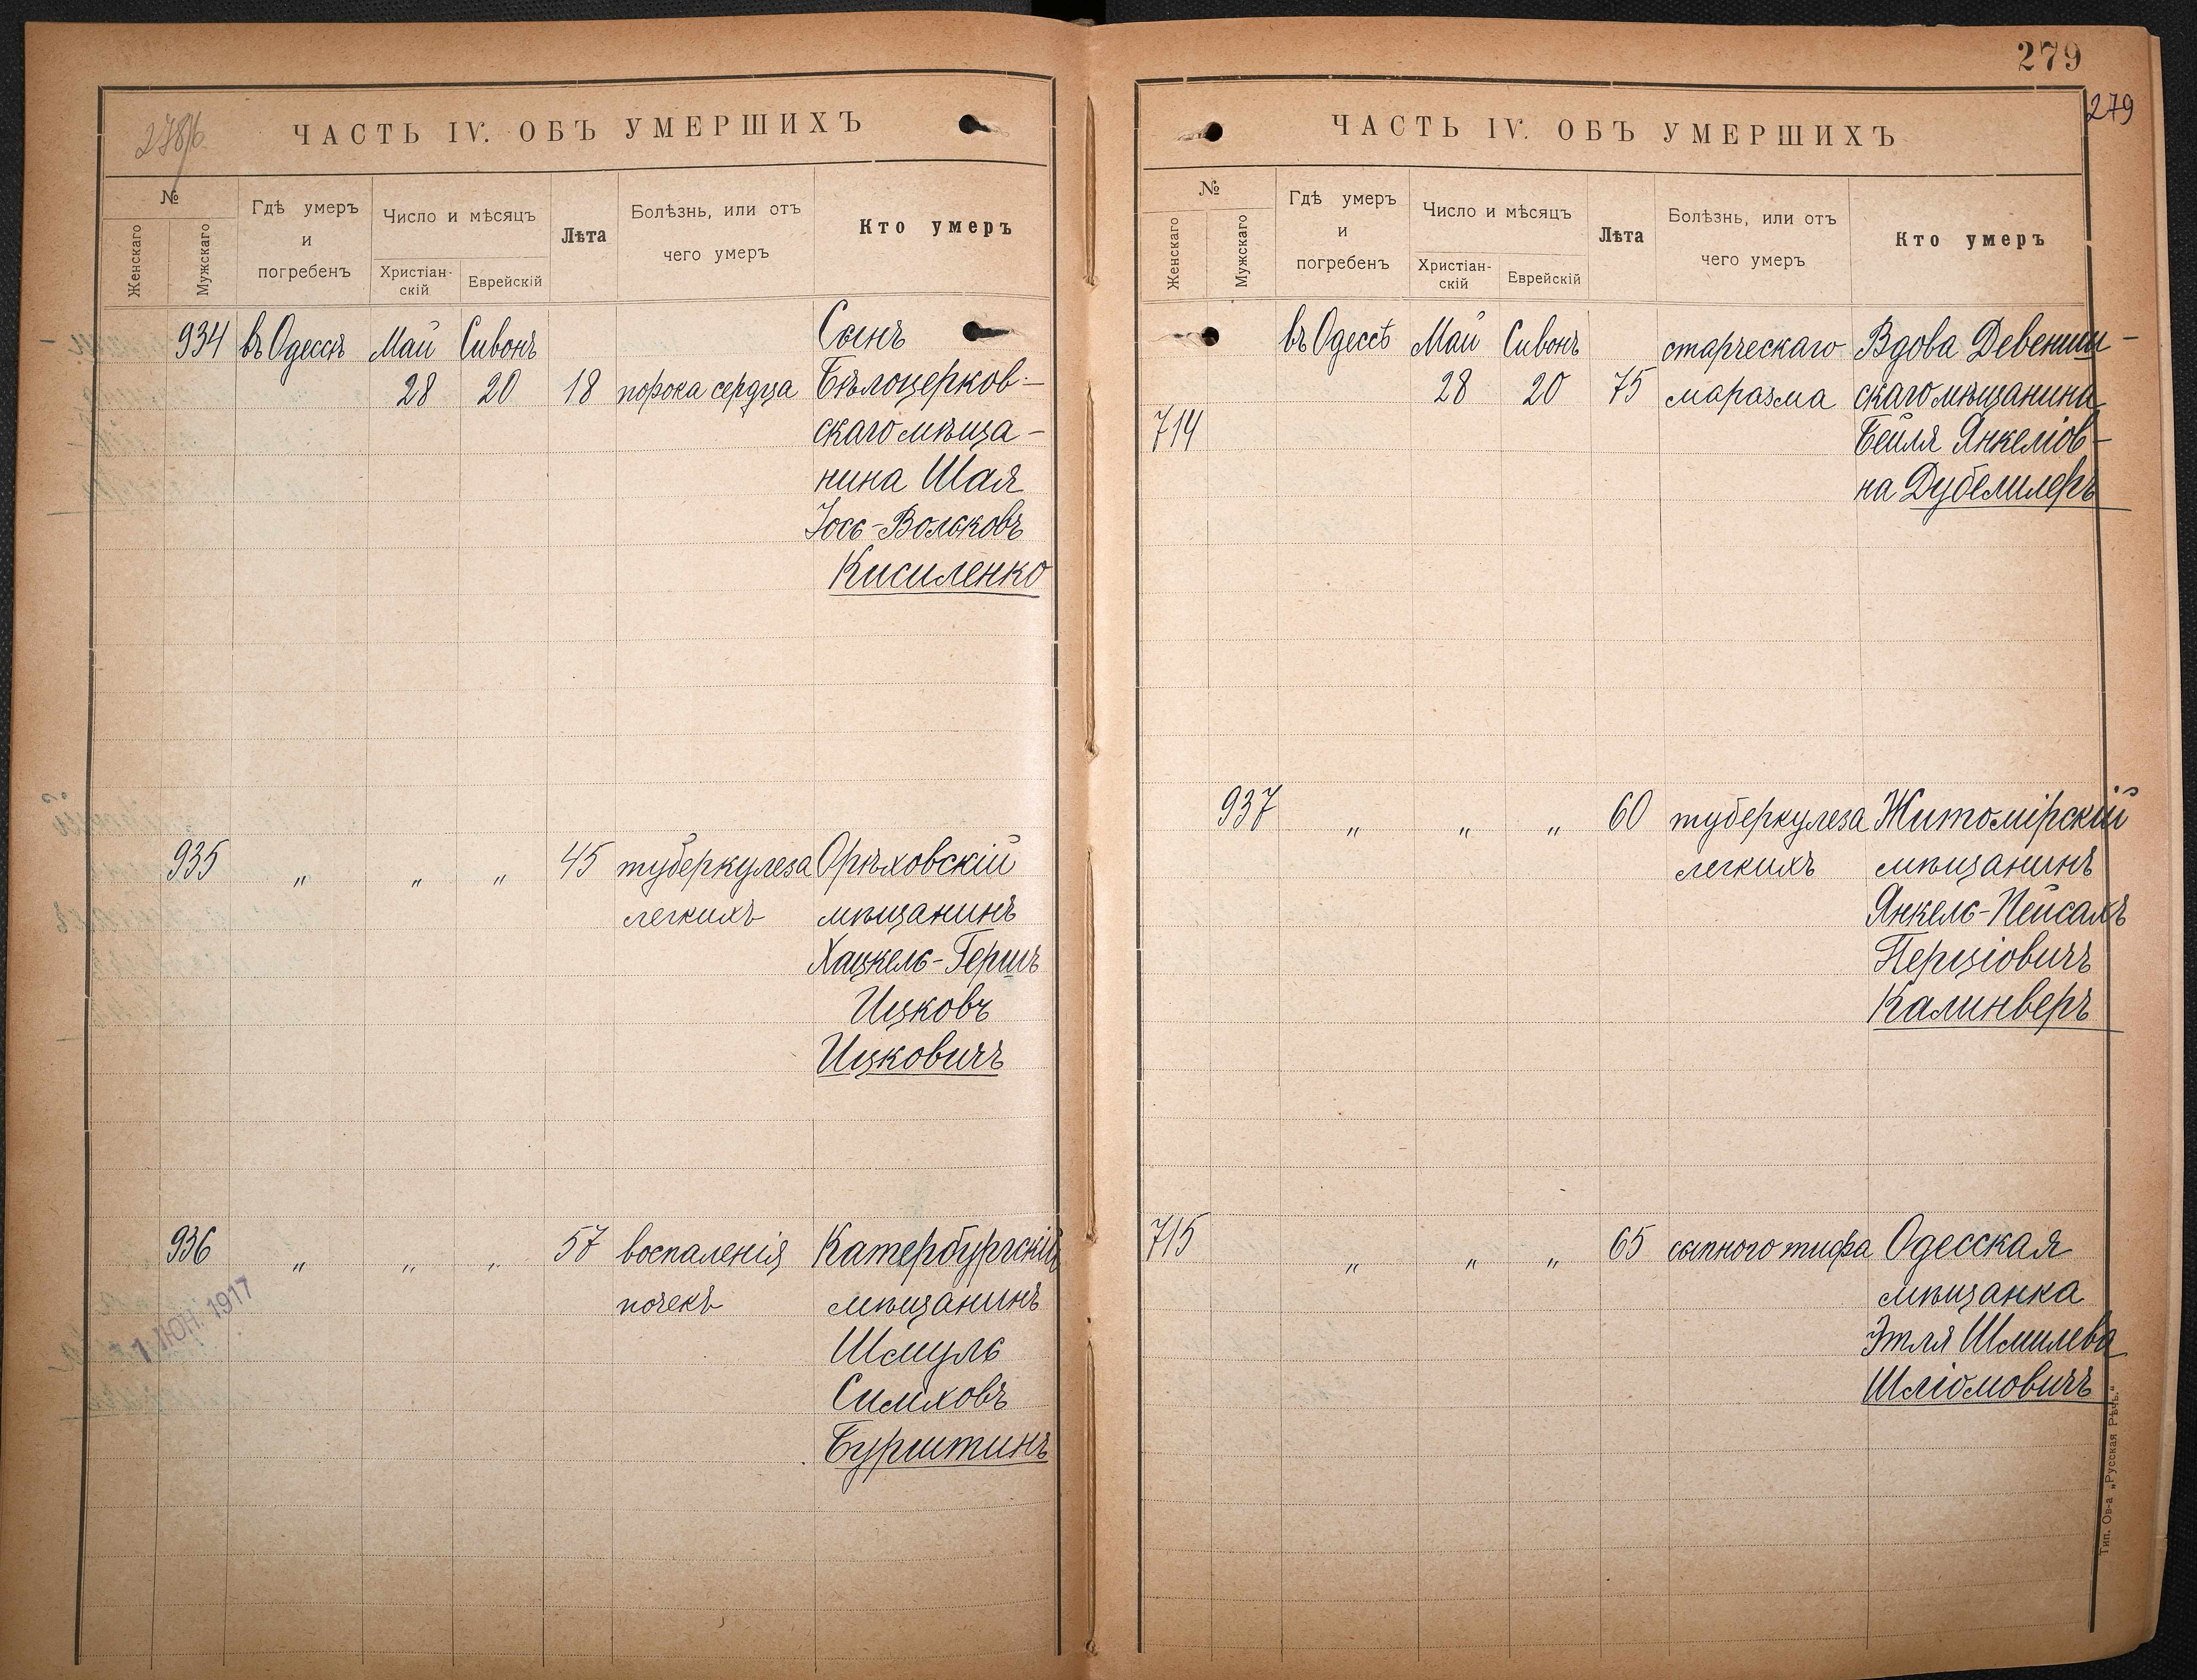 278/б
ЧАСТЬ IV. ОБЪ УМЕРШИХЪ
№
Женскаго
Мужскаго
Гдѣ умеръ
и
погребенъ
Число и мѣсяцъ
Христіан-
скій
Еврейскій
Лѣта
Болѣзнь, или отъ
чего умеръ
Кто умеръ
934 въ Одессѣ Май Сивонъ Сынъ
28 20 18 порока сердца Бѣлоцерков-
скаго мѣща-
нина Шая
Іось-Вольковъ
Кисиленко
935 „ „ „ 45 туберкулеза Орѣховскій
легкихъ мѣщанинъ
Хацкель-Гершъ
Ицковъ
Ицковичъ
936 „ „ „ 57 воспаленія Катербургскій
почекъ мѣщанинъ
Шмуль
Симховъ
Бурштинъ
1 ІЮН. 1917
279
279
ЧАСТЬ IV. ОБЪ УМЕРШИХЪ
№
Женскаго
Мужскаго
Гдѣ умеръ
и
погребенъ
Число и мѣсяцъ
Христіан-
скій
Еврейскій
Лѣта
Болѣзнь, или отъ
чего умеръ
Кто умеръ
въ Одессѣ Май Сивонъ старческаго Вдова Девениш-
28 20 75 маразма скаго мѣщанина
714 Бейля Янкеліов-
на Дубелмлеръ
937 „ „ „ 60 туберкулеза Житомірскій
легкихъ мѣщанинъ
Янкель-Пейсахъ
Перціовичъ
Калинверъ
715 „ „ „ 65 сыпного тифа Одесская
мѣщанка
Этля Шмилева
Шліомовичъ
Тип. Ов-а „Русская Рѣчь."